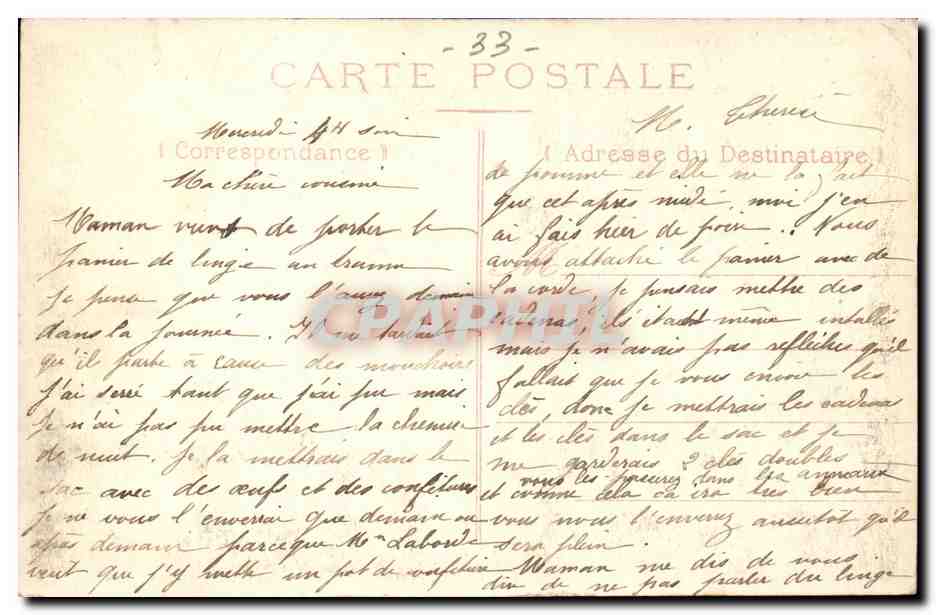 - 33 -
CARTE POSTALE
Mercredi 4H soir
(Correspondance)
Ma chère cousine
Maman vient de porter le
panier de linge au tramm
je pense que vous l'aurez demain
dans la journée. Il me tardait
qu'il parte à cause des mouchoirs
j'ai serré tant que j'ai pu mais
je n'ai pas pu mettre la chemise
de nuit. Je la mettrais dans le
sac avec des œufs et des confitures
je ne vous l'enverrai que demain ou
après demain parceque Mme Laborde
veut que j'y mette un pot de confiture
M. Therese
(Adresse du Destinataire)
de pomme et elle ne la fait
que cet après midi, moi j'en
ai fais hier de poire.. Nous
avons attaché le panier avec de
la corde, je pensais mettre des
cadenas, ils était même intallés
mais je n'avais pas refléchis qu'il
fallait que je vous envoie les
clés, donc je mettrais les cadenas
et les clés dans le sac et je
me garderais 2 clés doubles
vous les passerez dans les anneaux
et comme cela ça ira très bien
vous nous l'enverez aussitot qu'il
sera plein.
Maman me dis de vous
dire de ne pas parler du linge
CPAPHIL